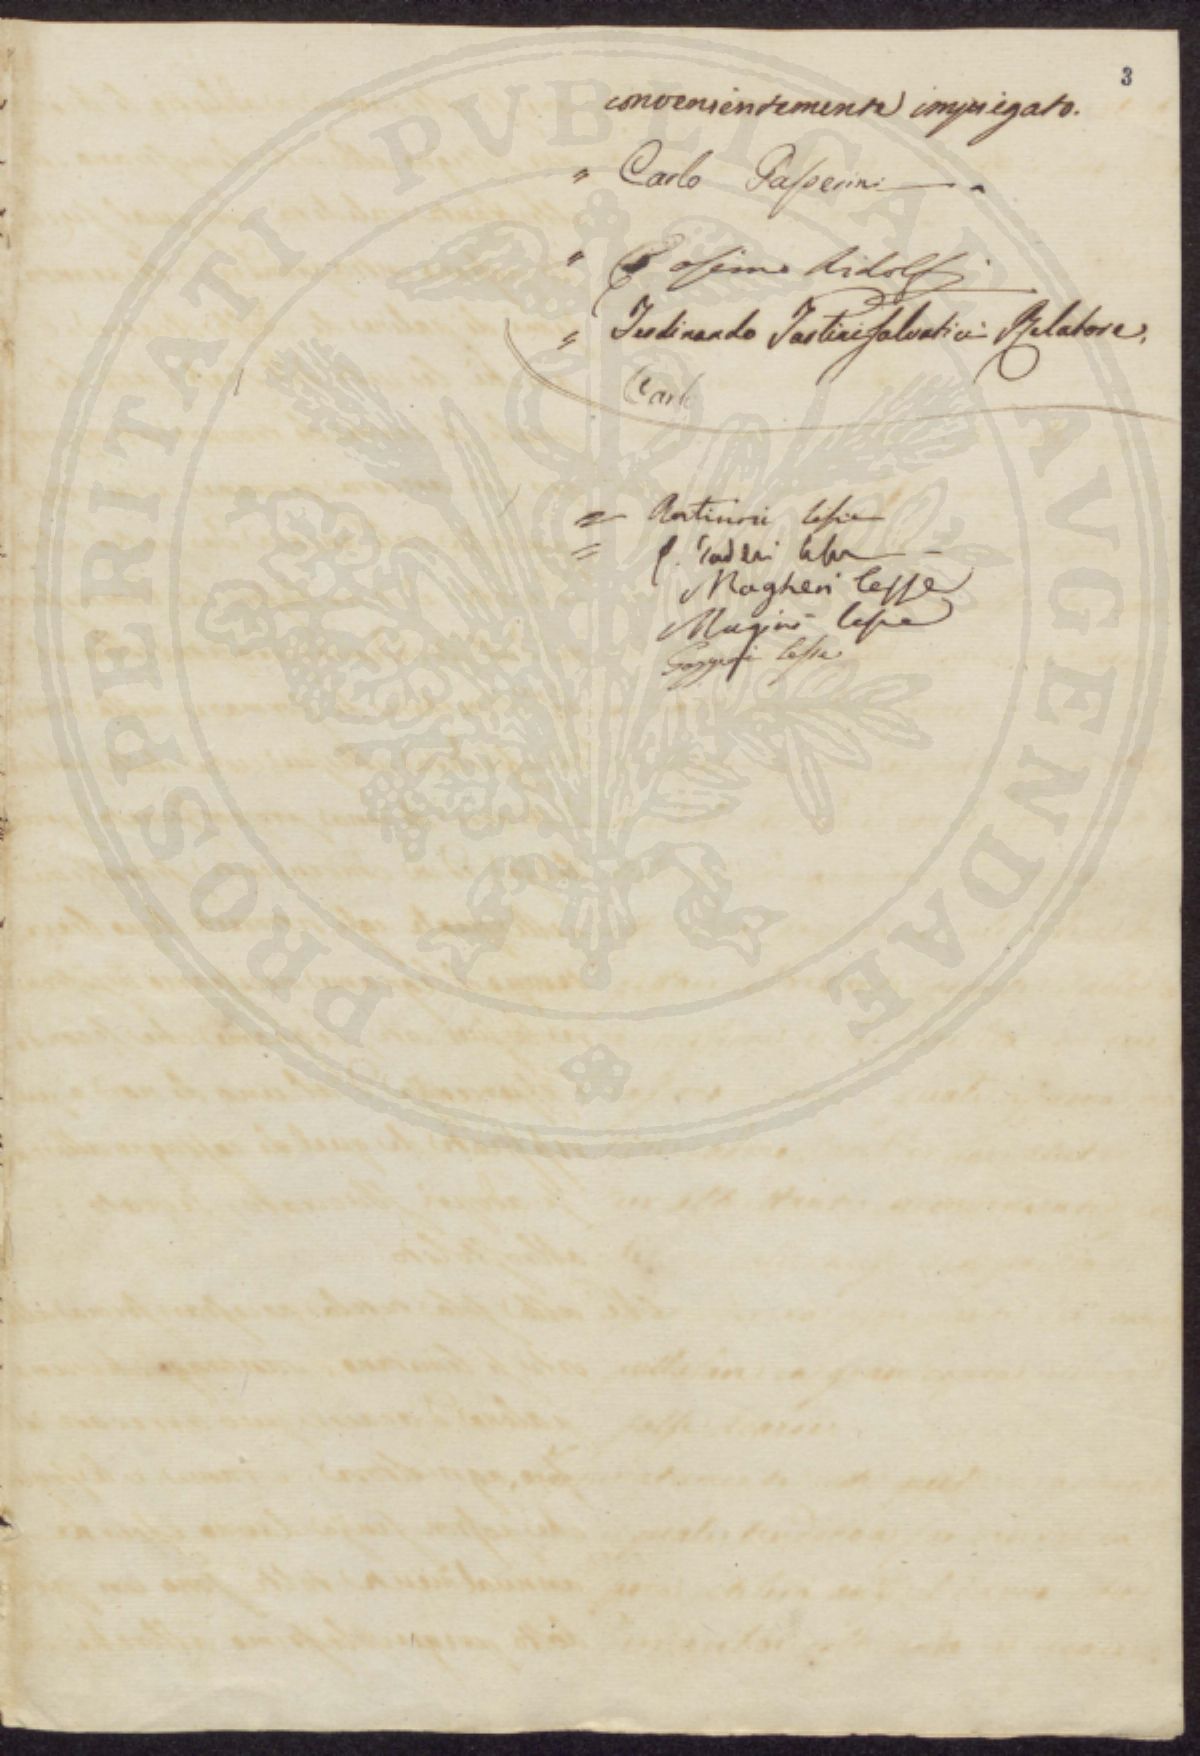 3
convenientemente impiegato.
" Carlo Passerini
" Cosimo Ridolfi
" Ferdinando Tartini Salvatici Relatore.
Carl
= Antinori lesse
= f. Taddei lesse
Magheri lesse
Magini lesse
Gazzeri lesse
PROSPERITATI PUBLICAE AVGENDAE